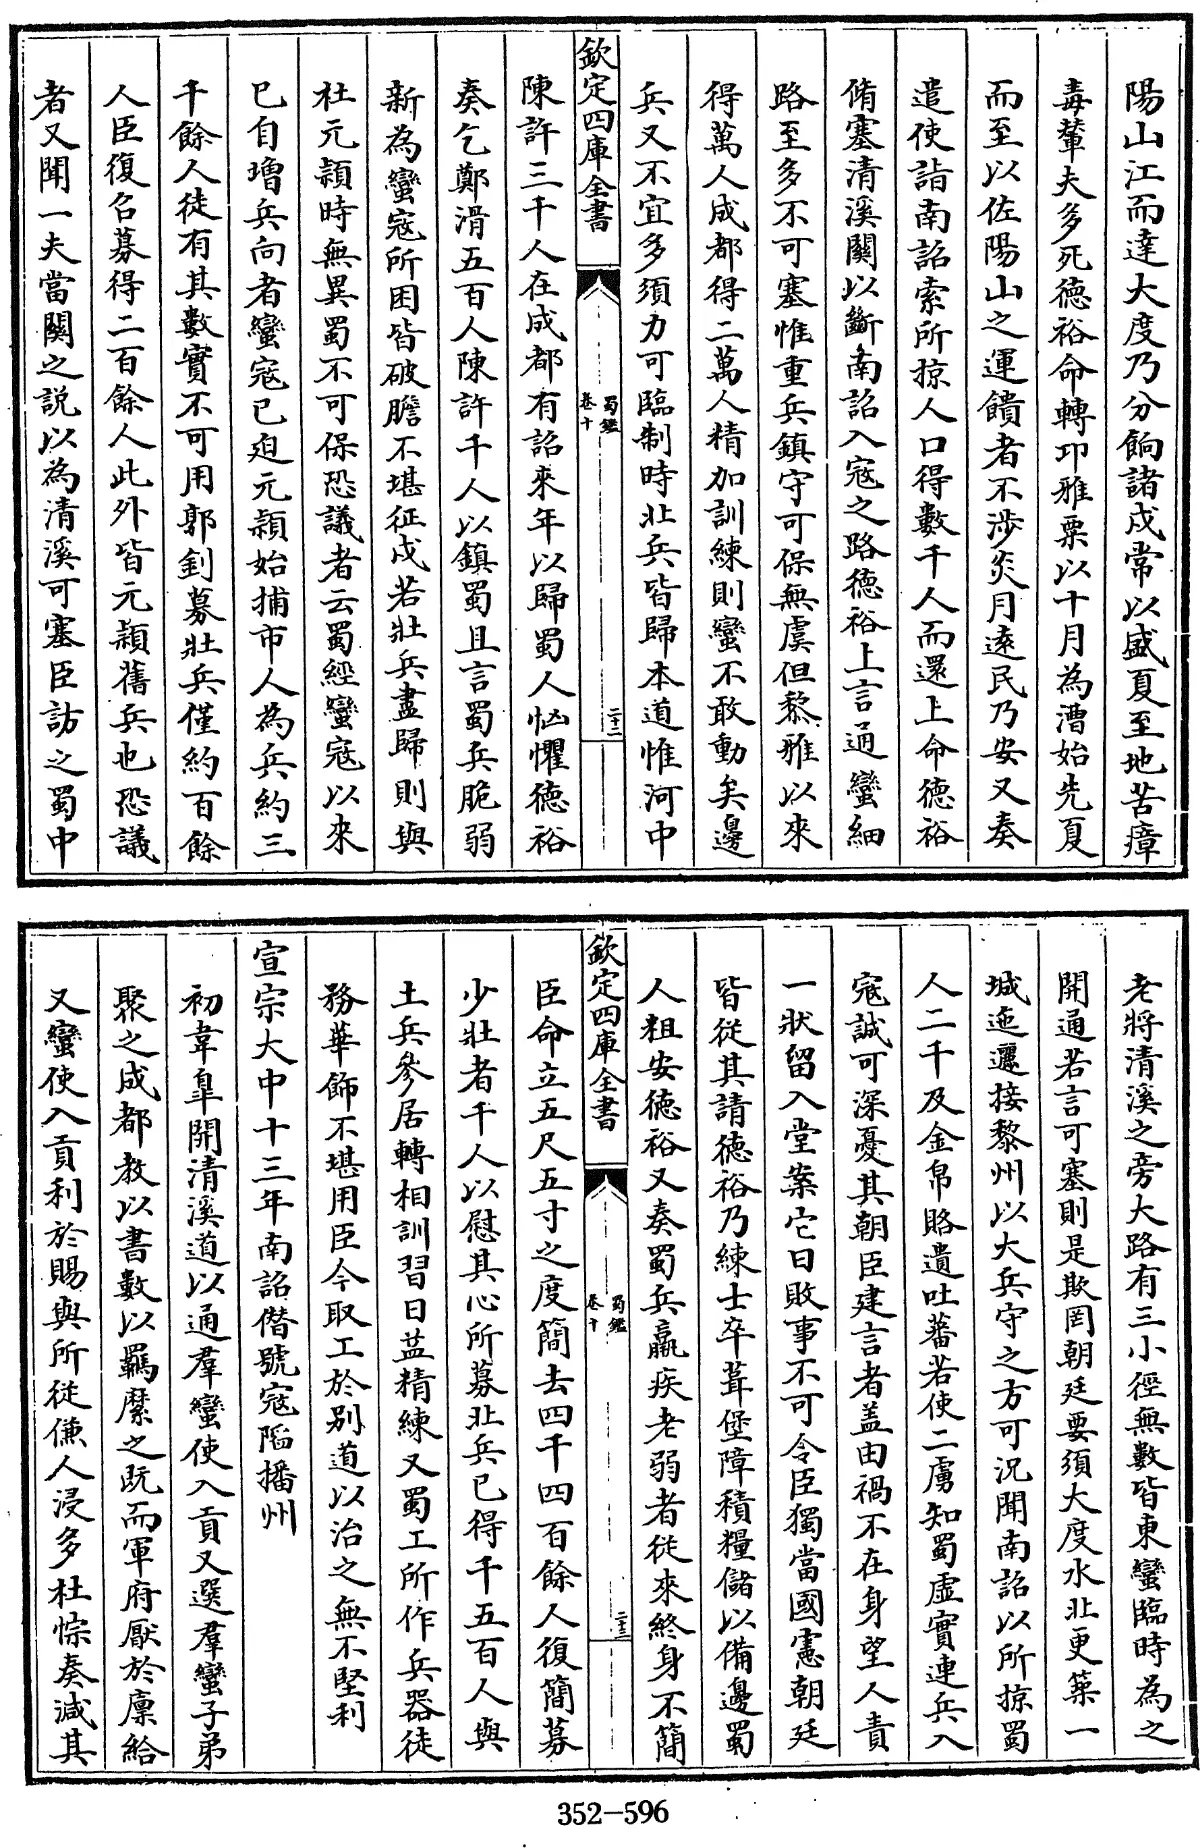 陽山江而達大度乃分餉諸戍常以盛夏至地苦瘴
毒輦夫多死德裕命轉邛雅粟以十月為漕始先夏
而至以佐陽山之運饋者不涉炎月遠民乃安又奏
遣使詣南詔索所掠人口得數千人而還上命德裕
脩塞清溪關以斷南詔入寇之路德裕上言通蠻細
路至多不可塞惟重兵鎮守可保無虞但黎雅以來
得萬人成都得二萬人精加訓練則蠻不敢動矣邊
兵又不宜多須力可臨制時北兵皆歸本道惟河中
欽定四庫全書
蜀鑑
卷十
二十二
陳許三千人在成都有詔來年以歸蜀人恟懼德裕
奏乞鄭滑五百人陳許千人以鎮蜀且言蜀兵脆弱
新為蠻寇所困皆破膽不堪征戍若北兵盡歸則與
杜元頴時無異蜀不可保恐議者云蜀經蠻寇以來
已自增兵向者蠻寇已迫元頴始捕市人為兵約三
千餘人徒有其數實不可用郭釗募北兵僅約百餘
人臣復召募得二百餘人此外皆元頴舊兵也恐議
者又聞一夫當關之説以為清溪可塞臣訪之蜀中
老將清溪之旁大路有三小徑無數皆東蠻臨時為之
開通若言可塞則是欺罔朝廷要須大度水北更築一
城迤邐接黎州以大兵守之方可況聞南詔以所掠蜀
人二千及金帛賂遺吐蕃若使二虜知蜀虛實連兵入
寇誠可深憂其朝臣建言者盖由禍不在身望人責
一狀留入堂案它日敗事不可令臣獨當國憲朝廷
皆從其請德裕乃練士卒葺堡障積糧儲以備邊蜀
人粗安德裕又奏蜀兵羸疾老弱者從來終身不簡
欽定四庫全書
蜀鑑
卷十
二十三
臣命立五尺五寸之度簡去四千四百餘人復簡募
少壯者千人以慰其心所募北兵已得千五百人與
土兵參居轉相訓習日益精練又蜀工所作兵器徒
務華飾不堪用臣今取工於别道以治之無不堅利
宣宗大中十三年南詔僭號寇䧟播州
初韋臯開清溪道以通羣蠻使入貢又選羣蠻子弟
聚之成都教以書數以羈縻之既而軍府厭於廪給
又蠻使入貢利於賜與所從傔人浸多杜悰奏減其
352-596